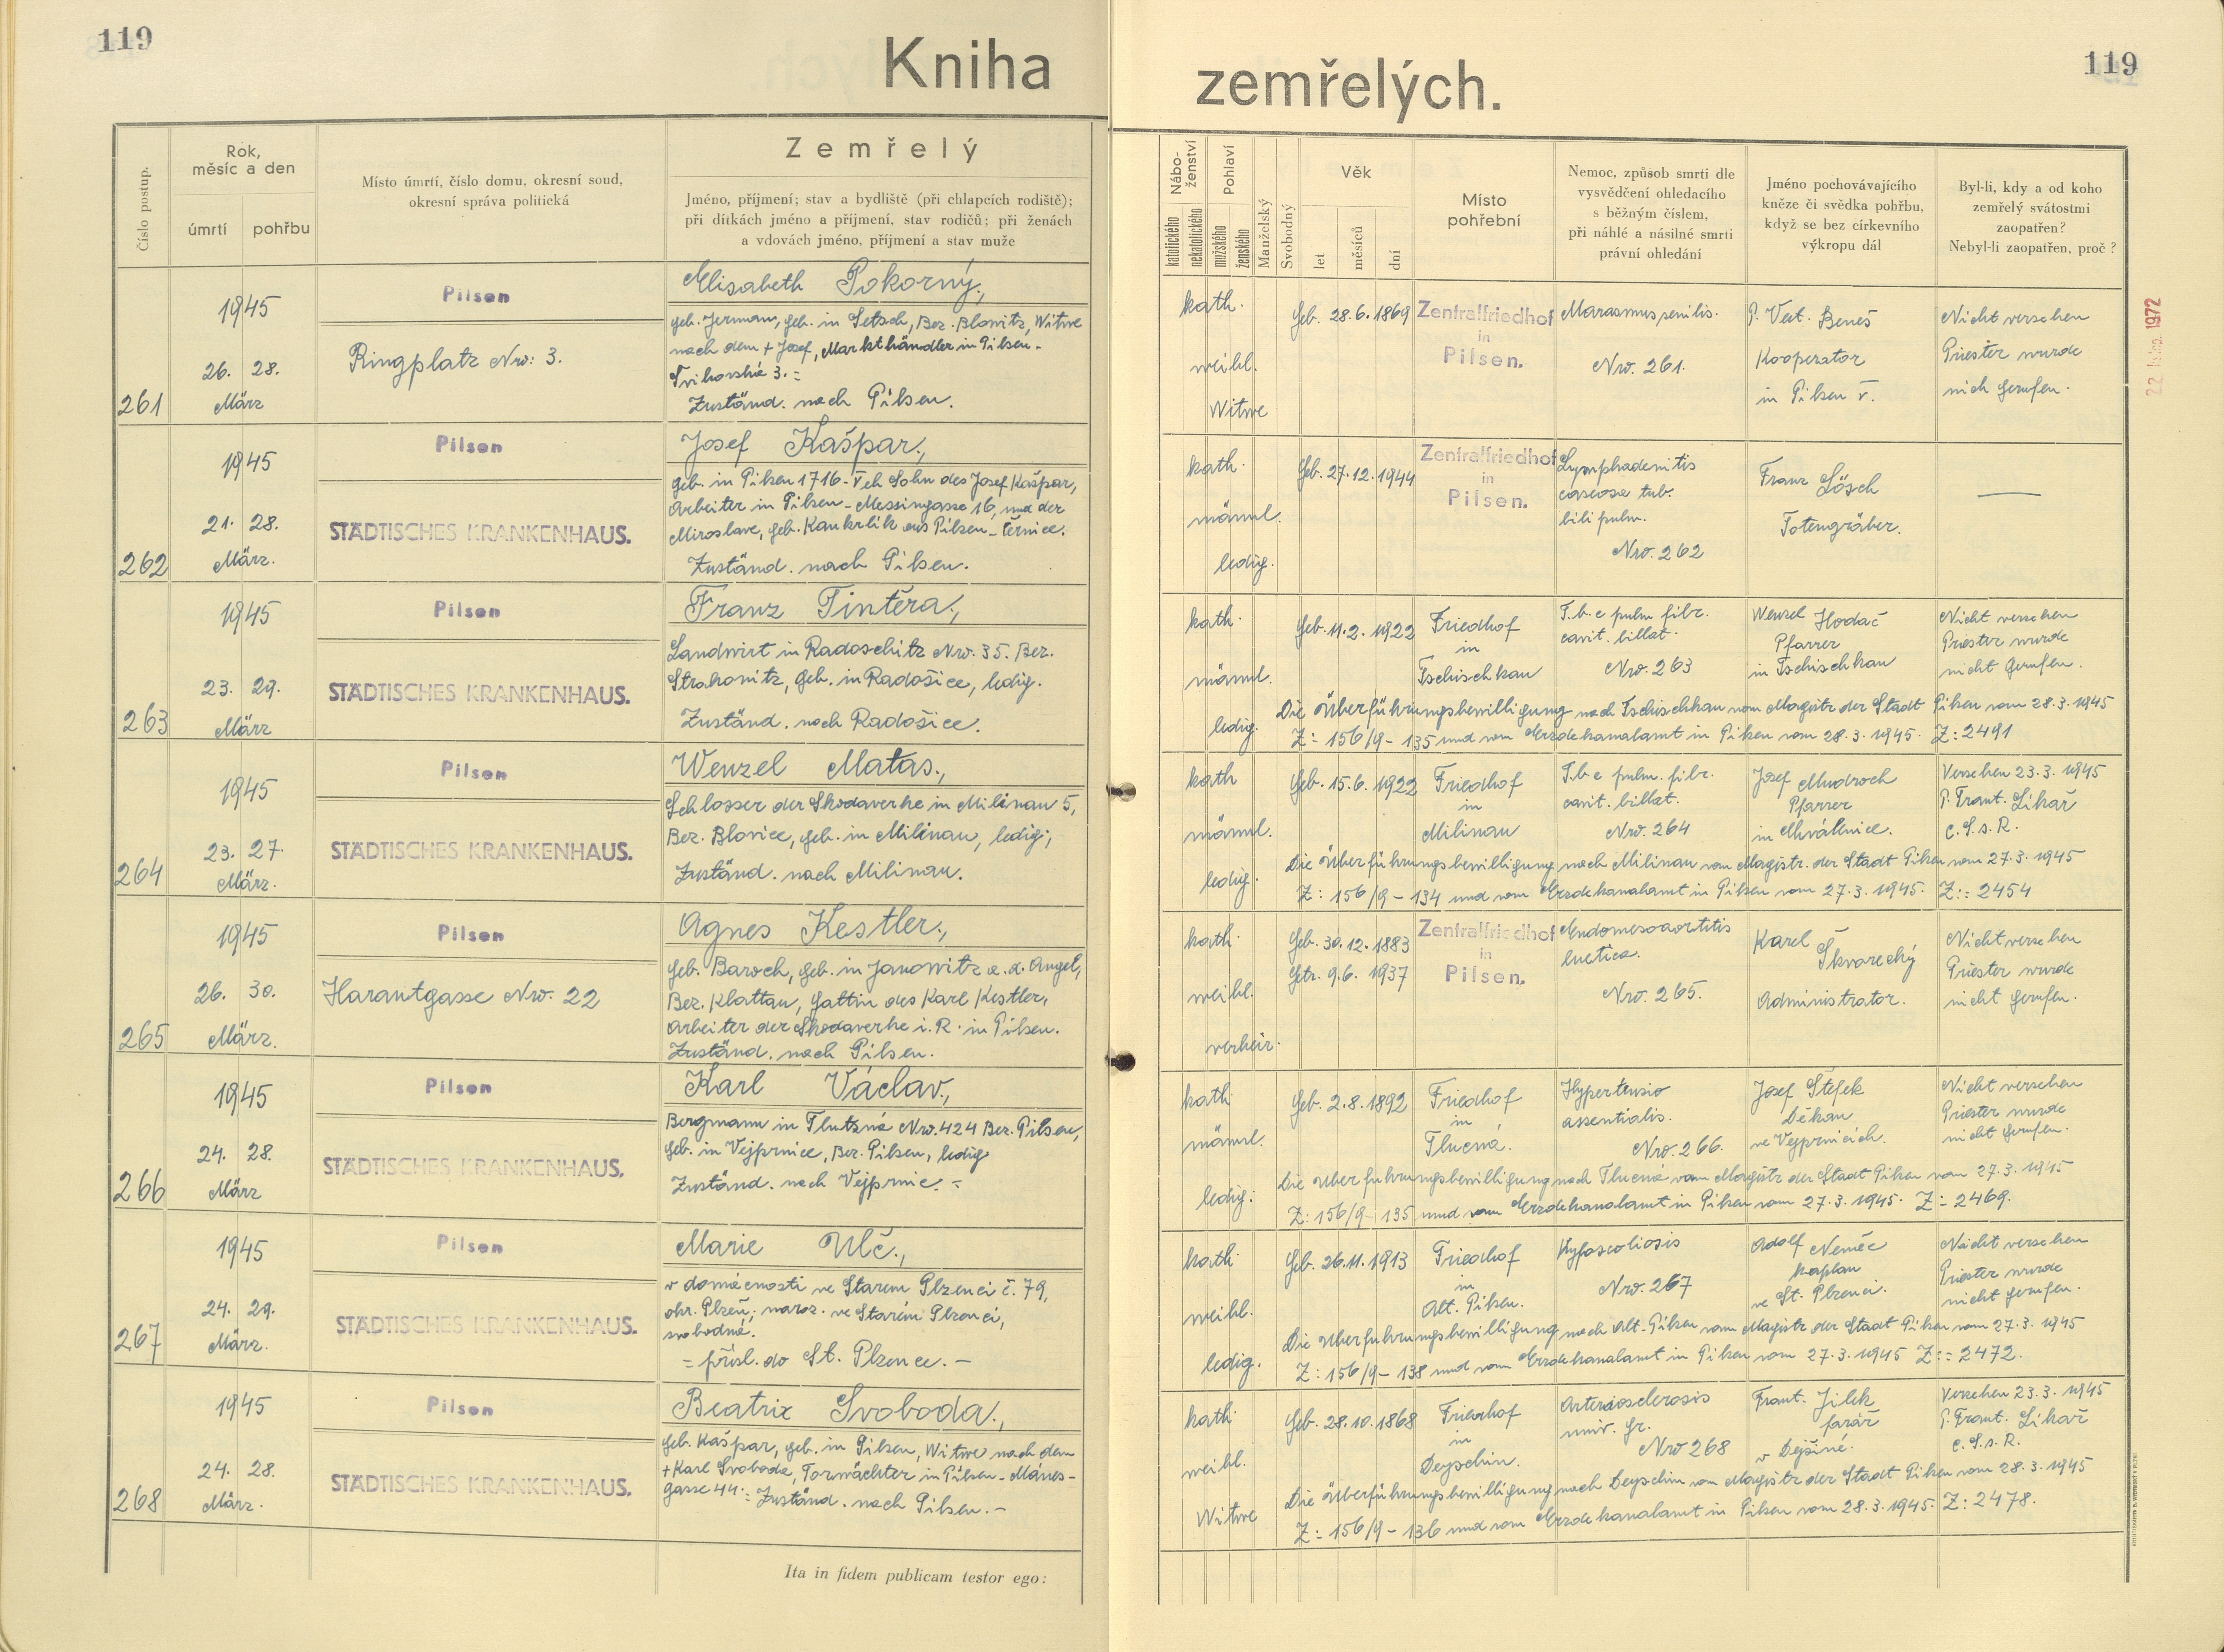 119
119
Kniha zemřelých.
Číslo postup.
Rok,
měsíc a den
úmrtí
pohřbu
Místo úmrtí, číslo domu, okresní soud,
okresní správa politická
Zemřelý
Jméno, příjmení; stav a bydliště (při chlapcích rodiště);
při dítkách jméno a příjmení, stav rodičů; při ženách
a vdovách jméno, příjmení a stav muže
Nábo-
ženství
katolického
nekatolického
Pohlaví
mužského
ženského
Manželský
Svobodný
Věk
let
měsíců
dní
Místo
pohřební
Nemoc, způsob smrti dle
vysvědčení ohledacího
s běžným číslem,
při náhlé a násilné smrti
právní ohledání
Jméno pochovávajícího
kněze či svědka pohřbu,
když se bez církevního
výkropu dál
Byl-li, kdy a od koho
zemřelý svátostmi
zaopatřen?
Nebyl-li zaopatřen, proč?
261
1945
26. 28.
März
Pilsen
Ringplatz Nro: 3.
Elisabeth Pokorný.,
geb. Jerman, geb. in Letsch, Bez. Blowitz, Witwe
nach dem + Josef, Markthändler in Pilsen-
3. =
Zuständ. nach Pilsen.
kath.
weibl.
Witwe
Geb. 28.6.1869
Zentralfriedhof
in
Pilsen.
Marasmus senilis.
Nro. 261.
P. Vat. Beneš
Kooperator
in Pilsen V.
Nicht versehen
Priester wurde
nich gerufen.
22. 1972
262
1945
21. 28.
März.
Pilsen
STÄDTISCHES KRANKENHAUS.
Josef Kašpar.,
geb. in Pilsen 1716-V eh Sohn des Josef Kašpar,
Arbeiter in Pilsen-Messingasse 16, und der
Miroslava, geb. Kaukrlik aus Pilsen-Černice.
Zuständ. nach Pilsen.
kath.
männl.
ledig.
Geb. 27.12.1944
Zentralfriedhof
in
Pilsen.
Lymphadenitis
caseosa tub.
bili pulm.
Nro. 262
Franz Lösch
Totengräber.
—
263
1945
23. 29.
März
Pilsen
STÄDTISCHES KRANKENHAUS.
Franz Tintěra.,
Landwirt in Radoschitz Nro. 35. Bez.
Strakonitz, geb. in Radošice, ledig.
Zuständ. nach Radošice.
kath.
männl.
ledig.
Geb. 11.2.1922
Friedhof
in
Tschischkau
T.b.c pulm. fibr.
cavit. billat.
Nro. 263
Wenzel Hodač
Pfarrer
in Tschischkau
Nicht versehen
Priester wurde
nicht gerufen.
Die Überführungsbewilligung nach Tschischkau vom Magistr der Stadt Pilsen vom 28.3.1945
Z: 156/9-135 und vom Erzdekanalamt in Pilsen vom 28.3.1945. Z: 2491
264
1945
23. 27.
März.
Pilsen
STÄDTISCHES KRANKENHAUS.
Wenzel Matas.,
Schlosser der Skodawerke in Milinau 5,
Bez. Blovice, geb. in Milinau, ledig;
Zuständ. nach Milinau.
kath
männl.
ledig.
Geb. 15.6.1922
Friedhof
in
Milinau
T.b.c pulm. fibr.
cavit. billat.
Nro. 264
Josef Mudroch
Pfarrer
in Chválenice.
Versehen 23.3.1945
P. Frant. Likař
C.S.s.R.
Die Überführungsbewilligung nach Milinau vom Magistr. der Stadt Pilsen vom 27.3.1945
Z: 156/9-134 und vom Erzdekanalamt in Pilsen vom 27.3.1945. Z:: 2454
265
1945
26. 30.
März.
Pilsen
Harantgasse Nro. 22
Agnes Kestler.,
geb. Baroch, geb. in Janowitz a.d. Angel,
Bez. Klattau, Gattin des Karl Kestler,
Arbeiter der Skodawerke i.R. in Pilsen.
Zuständ. nach Pilsen.
kath.
weibl.
verheir.
Geb. 30.12.1883
Getr. 9.6.1937
Zentralfriedhof
in
Pilsen.
Endomesoaortitis
luetica.
Nro. 265.
Karel Škvarechý
Administrator.
Nicht versehen
Priester wurde
nicht gerufen.
266
1945
24. 28.
März
Pilsen
STÄDTISCHES KRANKENHAUS.
Karl Václav.,
Bergmann in Tlutzná Nro. 424 Bez. Pilsen,
geb. in Vejprnice, Bez. Pilsen, ledig
Zuständ. nach Vejprnic. =
kath
männl.
ledig:
Geb. 2.8.1892
Friedhof
in
Tlucná.
Hypertensio
assentialis.
Nro. 266.
Josef Štefek
Děkan
ve Vejprnicích.
Nicht versehen
Priester wurde
nicht gerufen.
Die Überführungsbewilligung nach Tlucná vom Magistr der Stadt Pilsen vom 27.3.1945
Z: 156/9-135 und vom Erzdekanalamt in Pilsen vom 27.3.1945. Z:- 2469.
267
1945
24. 29.
März.
Pilsen
STÄDTISCHES KRANKENHAUS.
Marie Ulč.,
v domácnosti ve Starém Plzenci č. 79,
okr. Plzeň; naroz. ve Starém Plzenci,
svobodná.
= přísl. do St. Plzence. -
kath
weibl.
ledig.
Geb. 26.11.1913
Friedhof
in
Alt. Pilsen.
Kyfoscoliosis
Nro. 267
Adolf Nemec
kaplan
ve St. Plzenci.
Nicht versehen
Priester wurde
nicht gerufen.
Die Überführungsbewilligung nach Alt-Pilsen vom Magistr der Stadt Pilsen vom 27.3.1945
Z: 156/9-138 und vom Erzdekanalamt in Pilsen vom 27.3.1945 Z:: 2472.
268
1945
24. 28.
März.
Pilsen
STÄDTISCHES KRANKENHAUS.
Beatrix Svoboda.,
geb. Kašpar, geb. in Pilsen, Witwe nach dem
+ Karl Svoboda, Torwächter in Pilsen-Mánes-
gasse 44:= Zuständ. nach Pilsen.-
kath.
weibl.
Witwe
Geb. 28.10.1868
Friedhof
in
Deyschin.
Arteriosclerosis
univ. gr.
Nro 268
Frant. Jílek
farář
v Dejšiné.
Versehen 23.3.1945
P. Frant. Likař
C.S.s.R.
Die Überführungsbewilligung nach Deyschin vom Magistr der Stadt Pilsen vom 28.3.1945
Z: 156/9-136 und vom Erzdekanalamt in Pilsen vom 28.3.1945. Z: 2478.
Ita in fidem publicam testor ego: